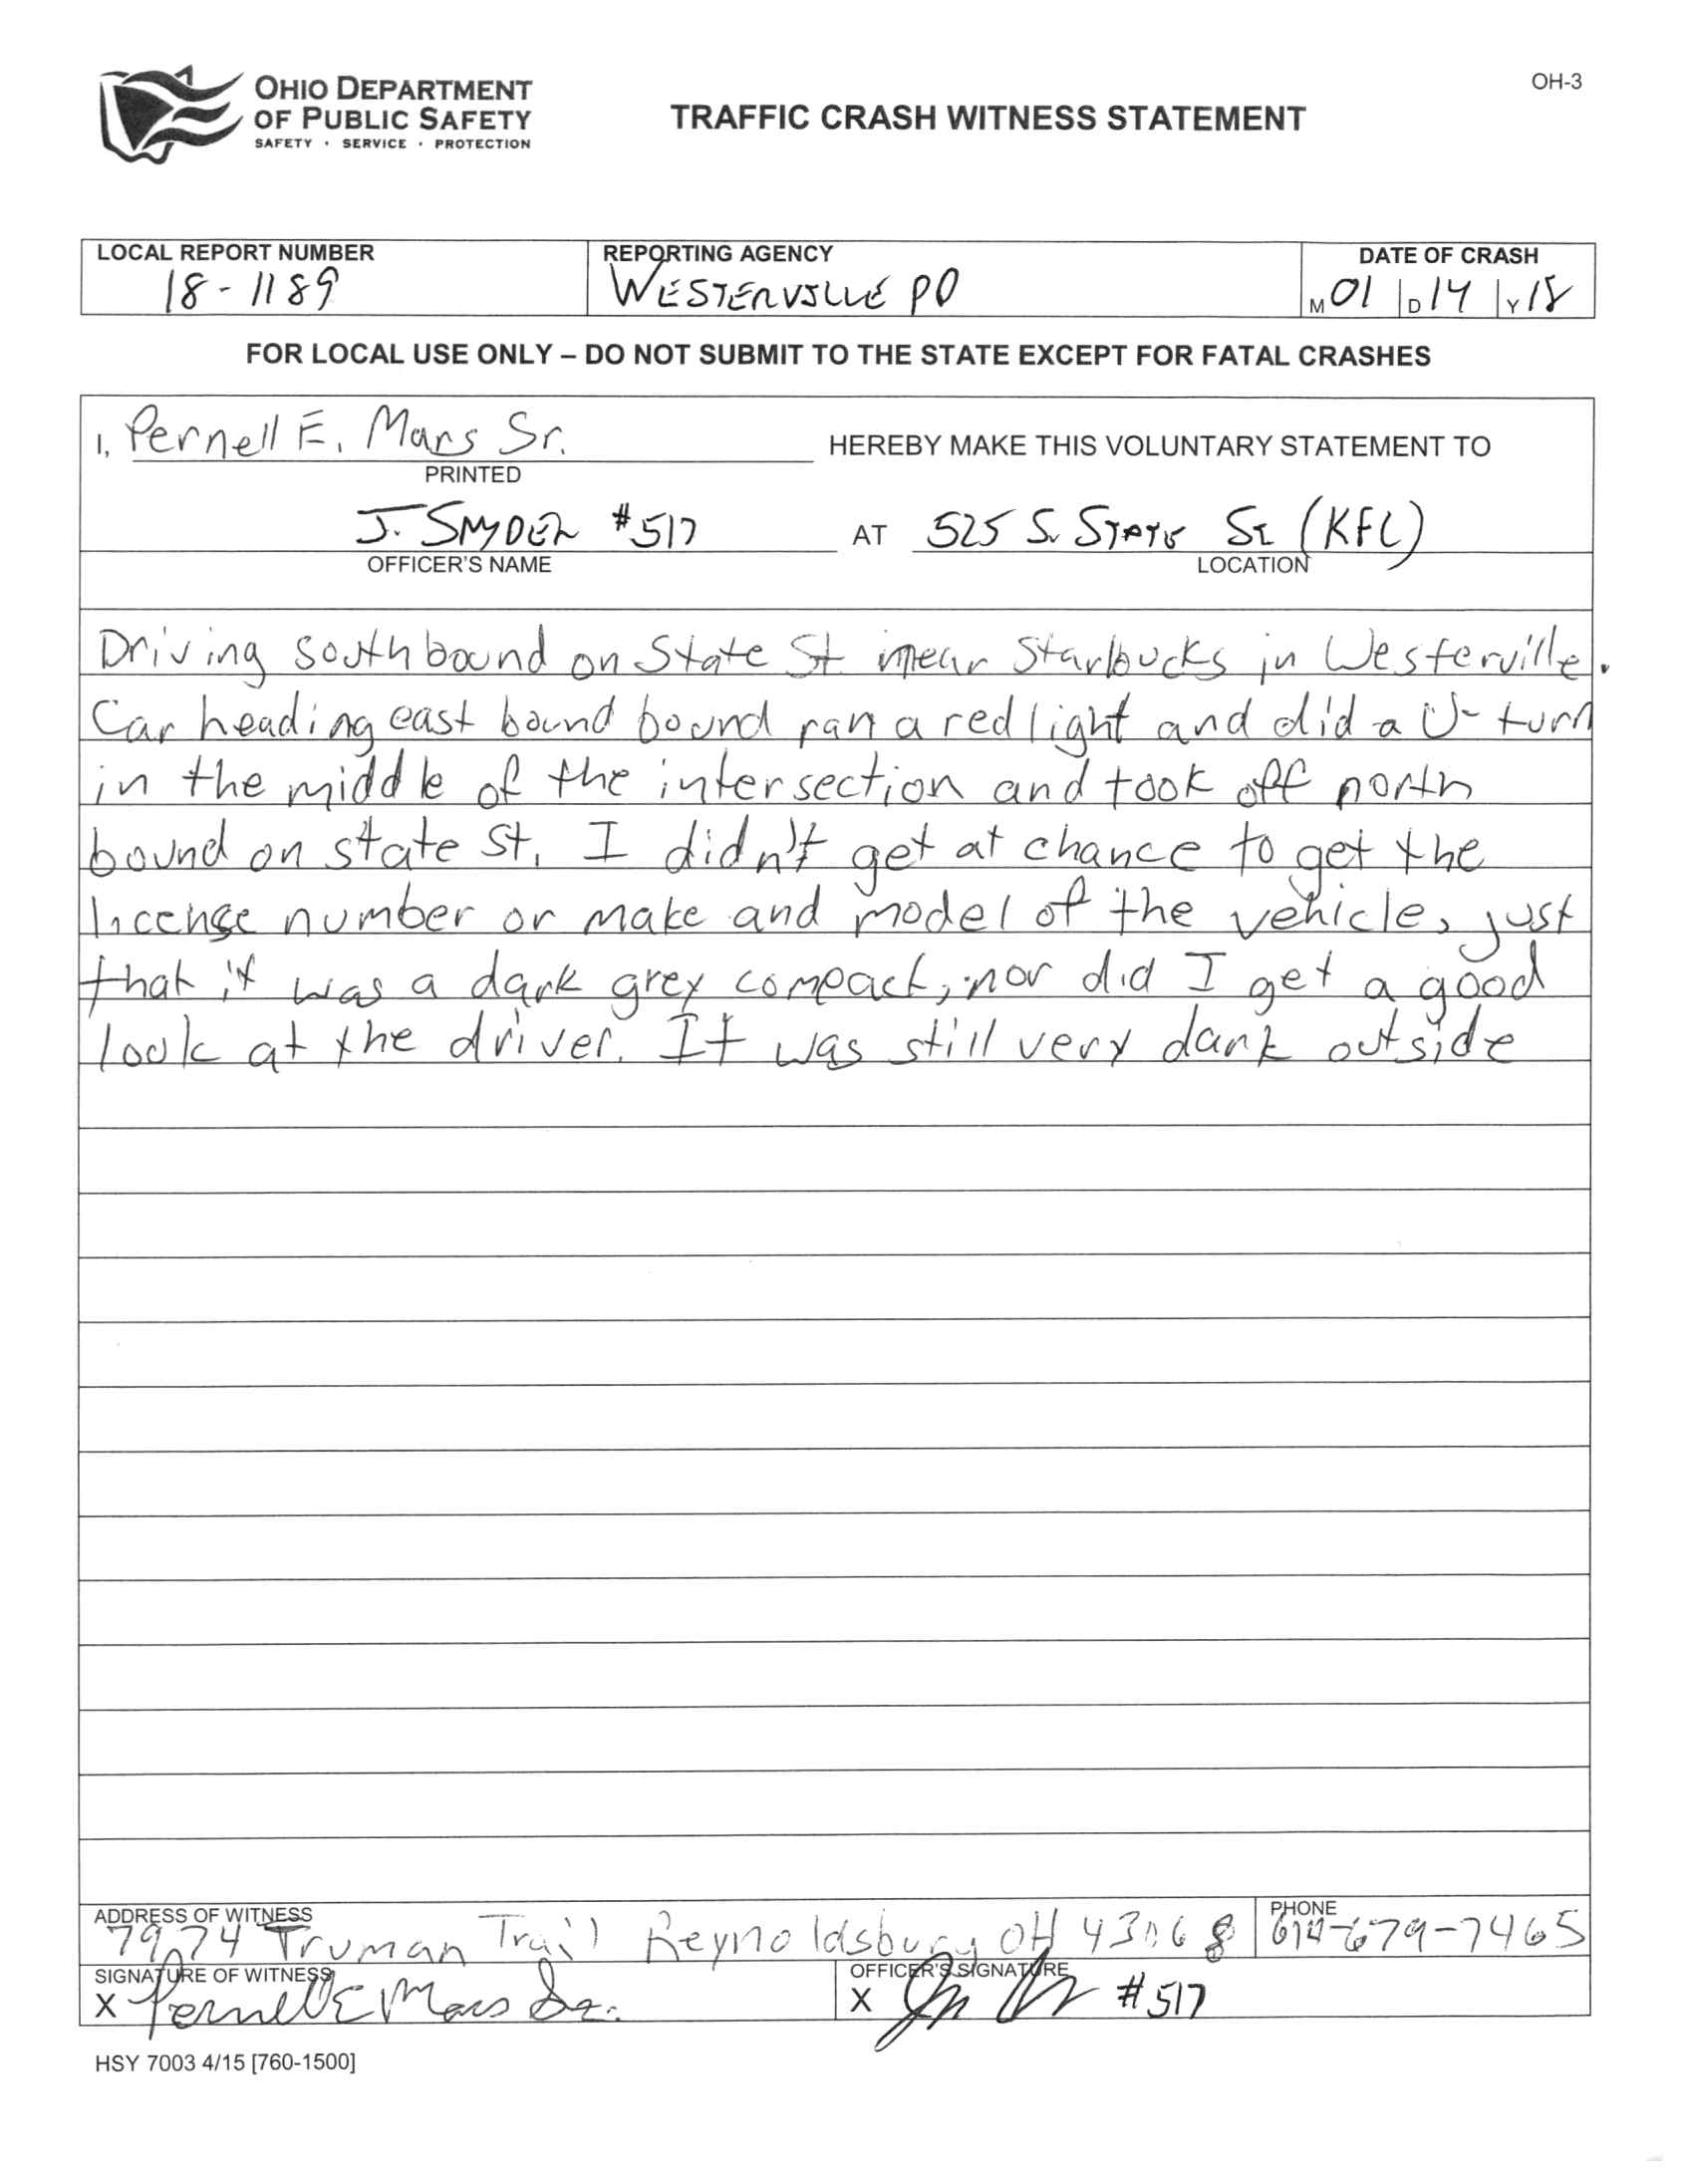 OHIO DEPARTMENT
OF PUBLIC SAFETY
SAFETY · SERVICE · PROTECTION
TRAFFIC CRASH WITNESS STATEMENT
OH-3
LOCAL REPORT NUMBER
18-1189
REPORTING AGENCY
WESTERVILLE PD
DATE OF CRASH
M 01 D 14 Y 18
FOR LOCAL USE ONLY – DO NOT SUBMIT TO THE STATE EXCEPT FOR FATAL CRASHES
I, Pernell E. Mars Sr. HEREBY MAKE THIS VOLUNTARY STATEMENT TO
PRINTED
J. SNYDER #517 AT 525 S. STATE ST (KFC)
OFFICER'S NAME LOCATION
Driving southbound on State St near Starbucks in Westerville.
Car heading east bound bound ran a red light and did a U-turn
in the middle of the intersection and took off north
bound on state St. I didn't get at chance to get the
license number or make and model of the vehicle, just
that it was a dark grey compact, nor did I get a good
look at the driver. It was still very dark outside
ADDRESS OF WITNESS
7974 Truman Trail Reynoldsburg OH 43068
PHONE
614-679-7465
SIGNATURE OF WITNESS
X Pernell E Mars Sr.
OFFICER'S SIGNATURE
X #517
HSY 7003 4/15 [760-1500]